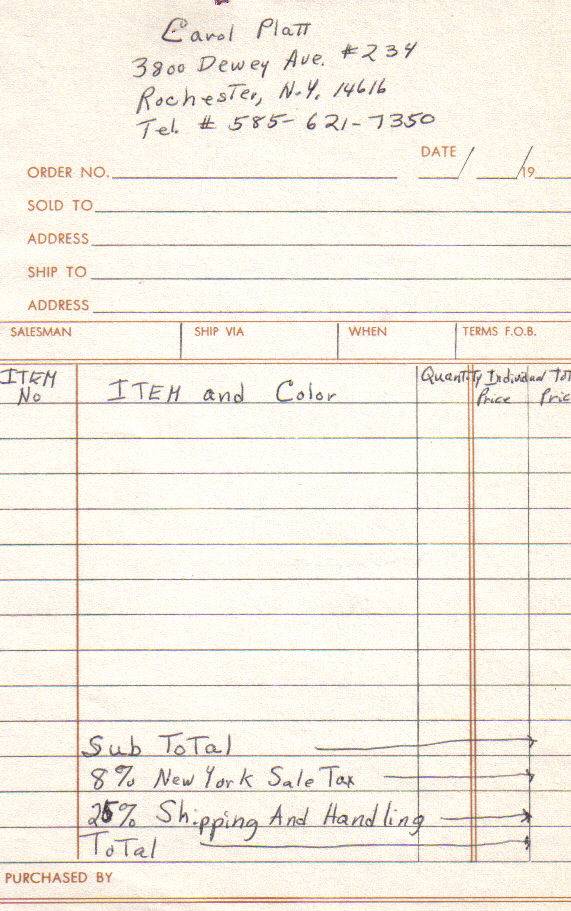 Carol Platt
3800 Dewey Ave. #234
Rochester, N.Y. 14616
Tel. # 585-621-7350
DATE / /19
ORDER NO.
SOLD TO
ADDRESS
SHIP TO
ADDRESS
SALESMAN SHIP VIA WHEN TERMS F.O.B.
ITEM No ITEM and Color Quantity Individual Price
Sub Total
8% New York Sale Tax
25% Shipping And Handling
Total
PURCHASED BY